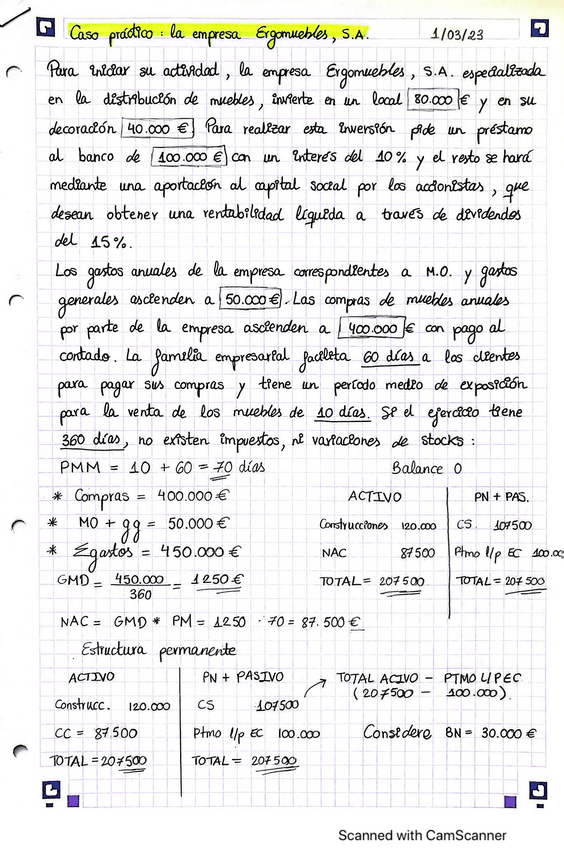 Caso práctico: la empresa Ergomuebles, S.A. 1/03/23
Para iniciar su actividad, la empresa Ergomuebles, S.A. especializada
en la distribución de muebles, invierte en un local 80.000 € y en su
decoración 40.000 € Para realizar esta inversión pide un préstamo
al banco de 100.000 € con un interés del 10% y el resto se hará
mediante una aportación al capital social por los accionistas, que
desean obtener una rentabilidad líquida a través de dividendos
del 15%.
Los gastos anuales de la empresa correspondientes a M.O. y gastos
generales ascienden a 50.000 €. Las compras de muebles anuales
por parte de la empresa ascienden a 400.000 € con pago al
contado. La familia empresarial facileta 60 días a los clientes
para pagar sus compras y tiene un período medio de exposición
para la venta de los muebles de 10 días. Si el ejercicio tiene
360 días, no existen impuestos, ni variaciones de stocks:
PMM = 10 + 60 = 70 días Balance 0
* Compras = 400.000 € ACTIVO PN + PAS.
* MO + gg = 50.000 € Construcciones 120.000 CS. 107500
* Σgastos = 450.000 € NAC 87500 Ptmo l/p EC 100.00
GMD = 450.000 / 360 = 1250 € TOTAL = 207500 TOTAL = 207500
NAC = GMD * PM = 1250 · 70 = 87.500 €
Estructura permanente
ACTIVO PN + PASIVO → TOTAL ACIVO - PTMO L/P EC
(207500 - 100.000).
Construcc. 120.000 CS 107500
CC = 87.500 Ptmo l/p EC 100.000 Considere BN = 30.000 €
TOTAL = 207500 TOTAL = 207500
Scanned with CamScanner